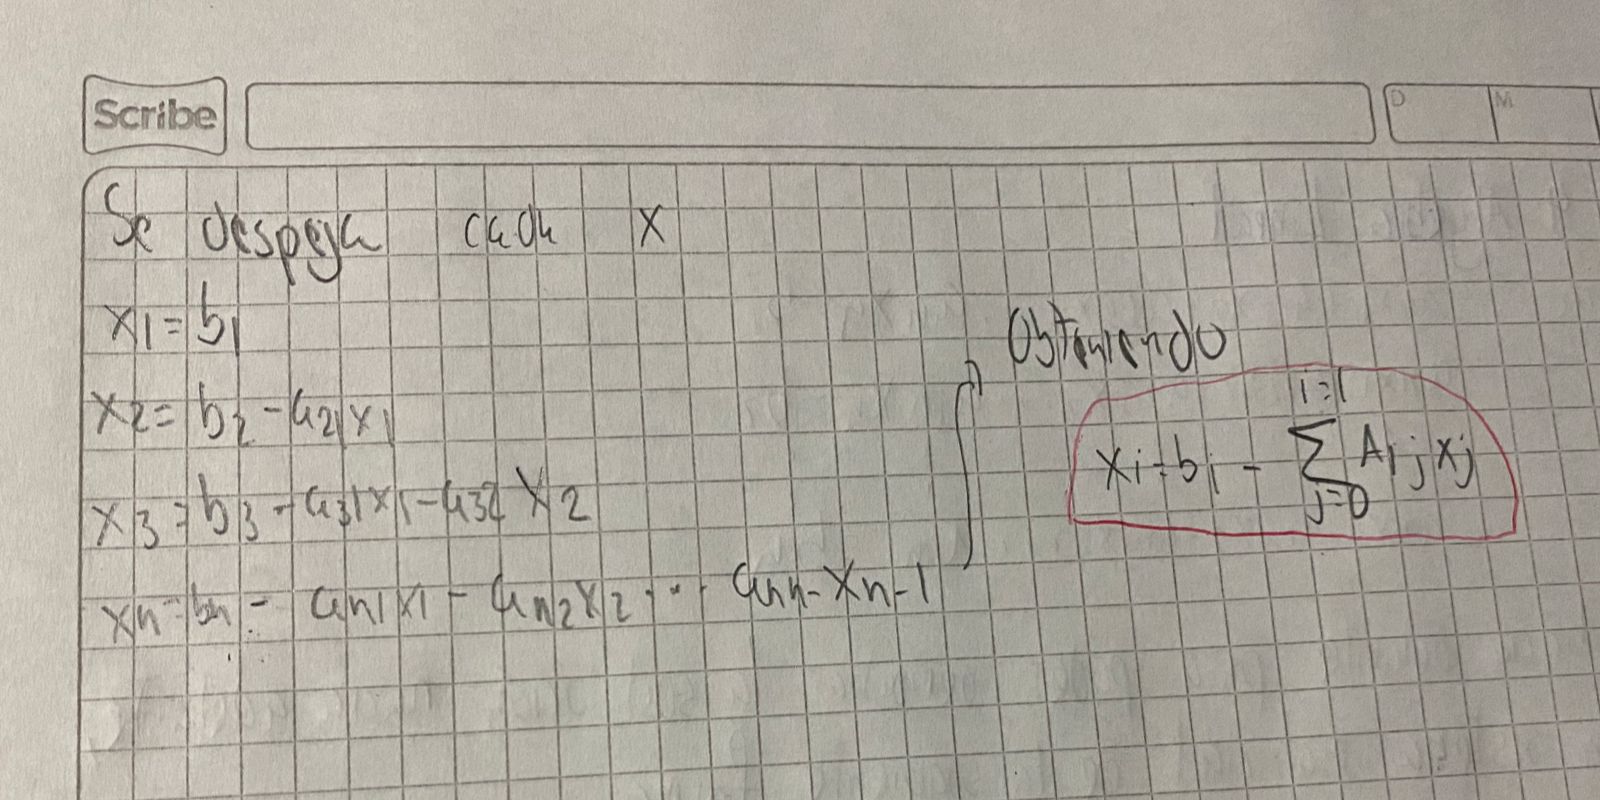 Scribe
D M
Se despeja cada x
x1 = b1
x2 = b2 - a21x1
x3 = b3 - a31x1 - a32 x2
xn = bn - an1x1 - an2x2 ... ann-xn-1
Obteniendo
i=1
xi = bi - Σ Aij xj
j=0